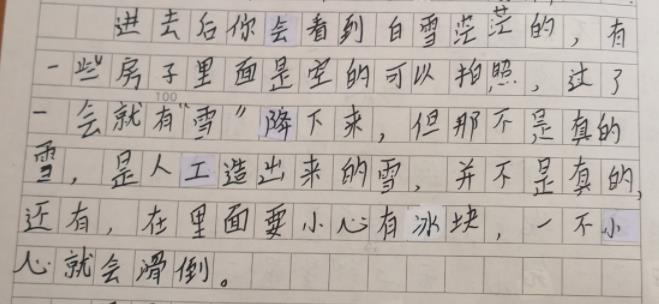 进去后你会看到白雪茫茫的，有
一些房子里面是空的可以拍照，过了
100
一会就有“雪”降下来，但那不是真的
雪，是人工造出来的雪，并不是真的，
还有，在里面要小心有冰块，一不小
心就会滑倒。